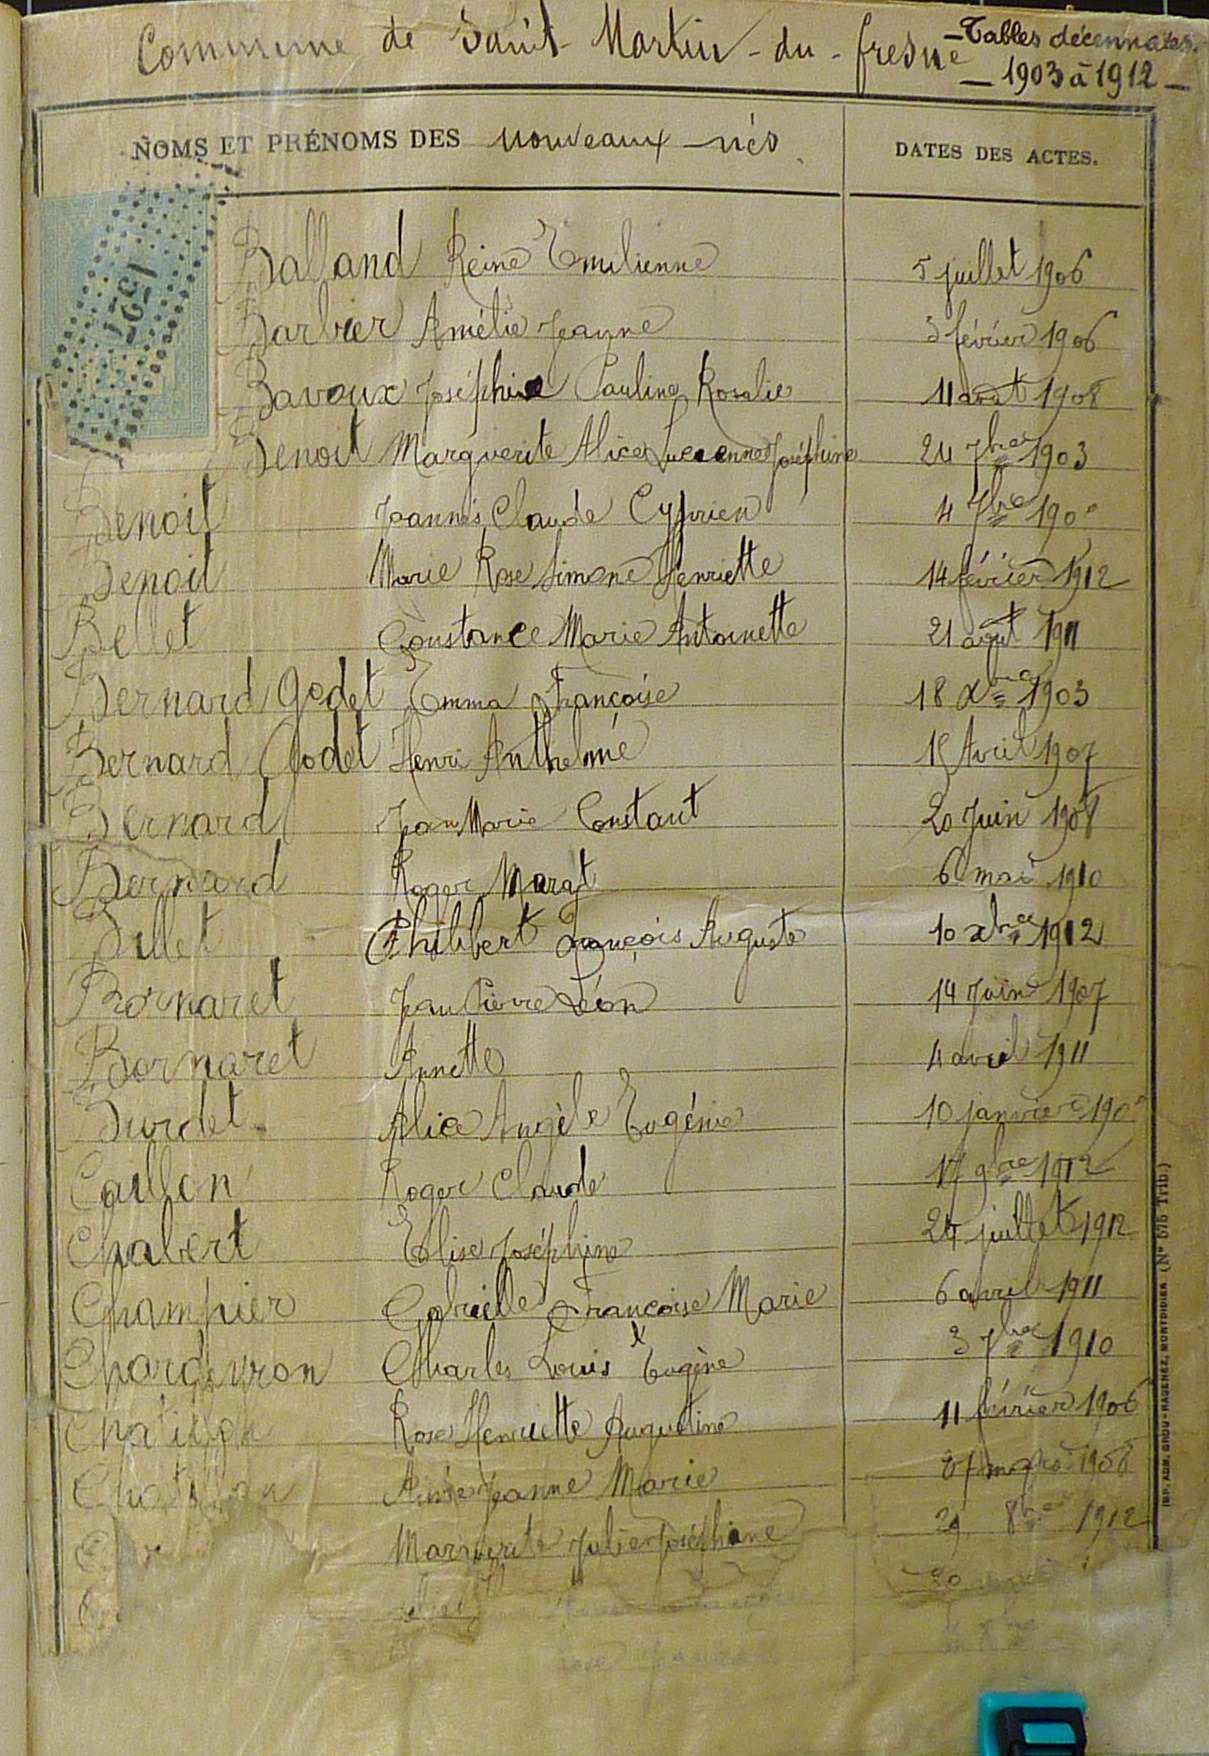 Commune de Saint-Martin-du-fresne
- Tables décennales.
- 1903 à 1912 -
NOMS ET PRÉNOMS DES nouveaux-nés DATES DES ACTES.
1527
Balland Reine Emilienne 5 juillet 1906
Barbier Amélie Jeanne 3 février 1906
Bavoux Joséphine Pauline Rosalie 11 août 1908
Benoit Marguerite Alice Lucienne Joséphine 24 7bre 1903
Benoit Joannès Claude Cyprien 4 7bre
Benoit Marie Rose Simone Henriette 14 février 1912
Bellet Constance Marie Antoinette 21 août 1911
Bernard Godet Emma Françoise 18 Xbre 1903
Bernard Godet Henri Anthelme Avril 1907
Bernard Jean Marie Constant 20 Juin 1908
Bernard Roger Marat 6 mai 1910
Billet Philibert François Auguste 10 xbre 1912
Bornaret Jean Pierre Léon 14 Juin 1907
Bornaret Annette 4 avril 1911
Burdet Alice Angèle Eugénie 10 janvier
Caillon Roger Claude 17 9bre 1912
Chabert Elise Joséphine 24 juillet 1912
Champier Gabrielle Françoise Marie 6 avril 1911
Chardeyron Charles Louis Eugène 3 7bre 1910
Chatillon Rose Henriette Augustine 11 février 1906
Chatillon Jeanne Marie mars 1908
Marguerite Julie Joséphine 29 8bre 1912
IMP. ADM. GROU-RADENEZ, MONTDIDIER (N° 575 Trib.)